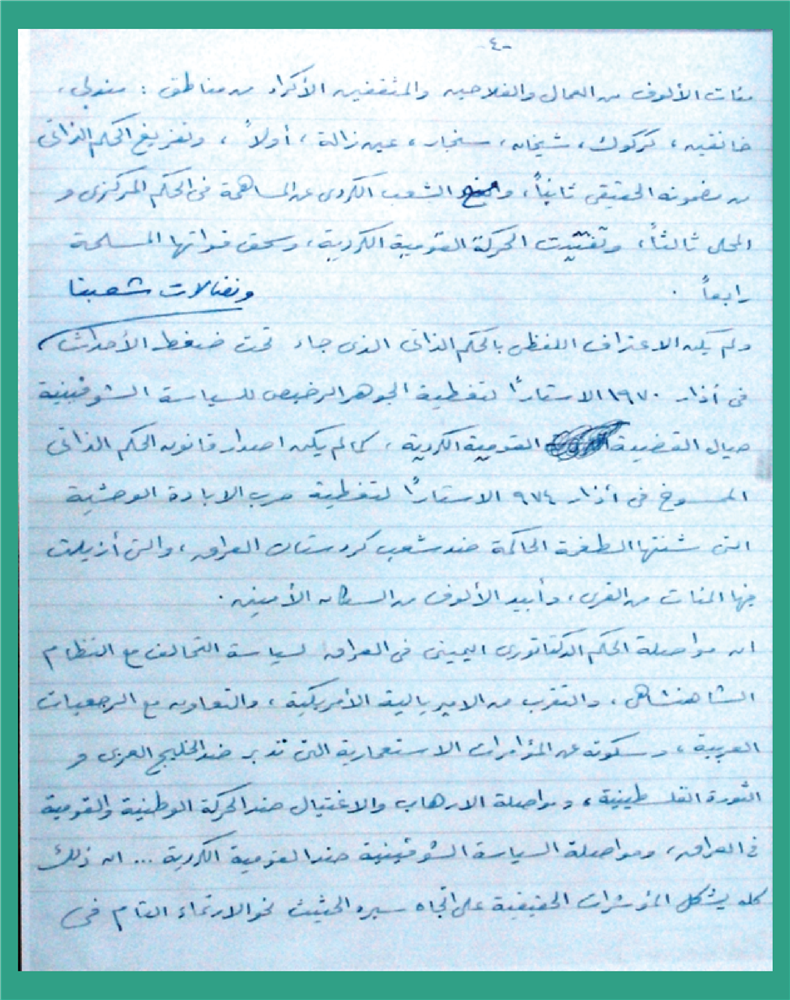 -٤-
مئات الألوف من العمال والفلاحين والمثقفين الأكراد من مناطق : مندلي،
خانقين، كركوك، شيخان، سنجار، عين زالة، أولاً، وتفريغ الحكم الذاتي
من مضمونه الحقيقي ثانياً، ومنع الشعب الكردي عن المساهمة في الحكم المركزي و
المحلي ثالثاً، وتفتيت الحركة القومية الكردية، وسحق قواتها المسلحة
رابعاً .
ونضالات شعبنا
ولم يكن الاعتراف اللفظي بالحكم الذاتي الذي جاء تحت ضغط الأحداث
في أذار ١٩٧٠ الا ستاراً لتغطية الجوهر الرخيص للسياسة الشوفينية
حيال القضية القومية الكردية، كما لم يكن اصدار قانون الحكم الذاتي
الممسوخ في أذار ٩٧٤ الا ستاراً لتغطية حرب الابادة الوحشية
التي شنتها الطغمة الحاكمة ضد شعب كردستان العراق، والتي أزيلت
فيها المئات من القرى، وأبيد الألوف من السكان الأمنين .
ان مواصلة الحكم الدكتاتوري اليميني في العراق لسياسة التحالف مع النظام
الشاهنشاهي، والتقرب من الامبريالية الأمريكية، والتعاون مع الرجعيات
العربية، وسكوته عن المؤامرات الاستعمارية التي تدبر ضد الخليج العربي و
الثورة الفلسطينية، ومواصلة الارهاب والاغتيال ضد الحركة الوطنية والقومية
في العراق، ومواصلة السياسة الشوفينية ضد القومية الكردية ... ان ذلك
كله يشكل المؤشرات الحقيقية على اتجاه سيره الحثيث نحو الارتماء التام في